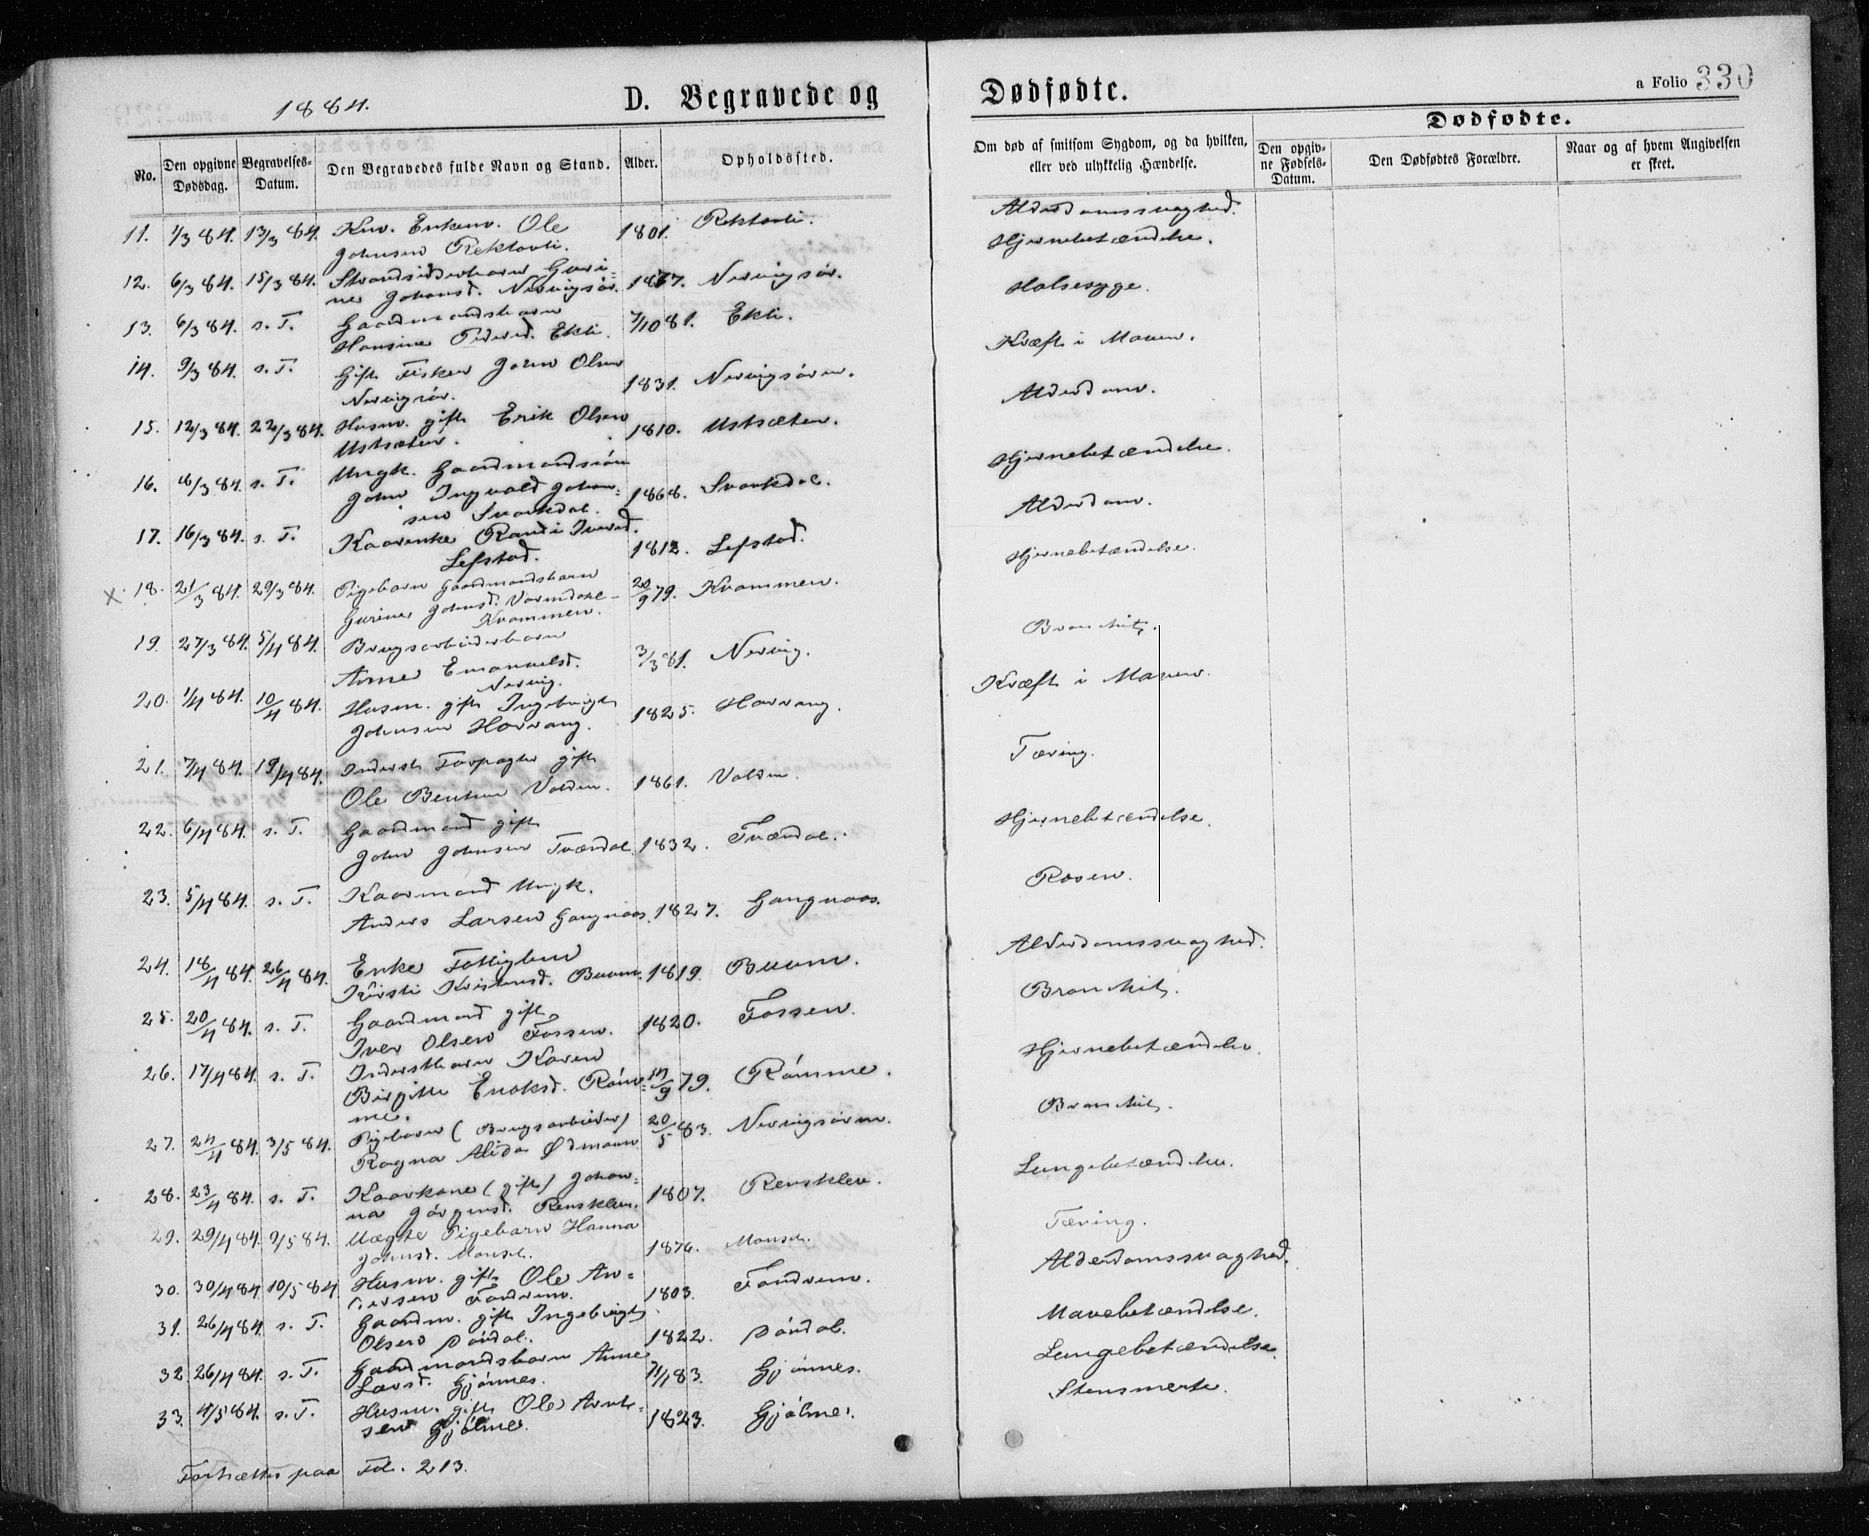 1884.
D. Begravede og
Dødfødte.
a Folio 330
No.
Den opgivne Dødsdag.
Begravelses-Datum.
Den Begravedes fulde Navn og Stand.
Alder.
Opholdssted.
Om død af smitsom Sygdom, og da hvilken, eller ved ulykkelig Hændelse.
Dødfødte.
Den opgiv-
ne Fødsels-
Datum.
Den Dødfødtes Forældre.
Naar og af hvem Angivelsen er skeet.
11. 1/3 84. 13/3 84. Enkem. Ole 1801. Alderdomssvaghed.
Johnsen
12. 6/3 84. 15/3 84. Strandsidderbarn Guri- 1877. Nervigsør. Hjernebetændelse.
ne Johansd. Nervigsør.
13. 6/3 84. s. T. Gaardmandsbarn 7/10 81. Ekli. Halsesyge.
Hansine Pedersd. Ekli.
14. 9/3 84. s. T. Gift Fisker John Olsen 1831. Nervigsøren. Kræft i Maven.
Nervigsør.
15. 12/3 84. 22/3 84. Husm. gift Erik Olsen 1810. Ustsæten. Alderdom.
Ustsæten.
16. 8/3 84. s. T. Ungk. Gaardmandssøn Hjernebetændelse.
John Ingvald Johan- 1868. Svorkdal.
sen Svorkdal.
17. 16/3 84. s. T. Kaarenke Randi Iversd. 1812. Lefstad. Alderdom.
Lefstad.
x 18. 21/3 84. 29/3 84. Pigebarn Gaardmandsbarn 20/9 79. Kvammen. Hjernebetændelse.
Gurine Johnsd. Vormdal-
Kvammen.
19. 27/3 84. 5/4 84. Brugsarbeiderbarn 3/3 81. Nervig. Bronchit.
Anne Emanuelsd.
Nervig.
20. 1/4 84. 10/4 84. Husm. gift Ingebrigt 1825. Hovvang. Kræft i Maven.
Johnsen Hovvang.
21. 7/4 84. 19/4 84. Inderst Forpagter gift Tæring.
Ole Bentsen Volden. 1861. Volden.
22. 6/4 84. s. T. Gaardmand gift Hjernebetændelse.
John Johnsen Tværdal. 1832. Tværdal.
23. 5/4 84. s. T. Kaarmand Ungk. Rosen.
Anders Larsen Gangnaas. 1827. Gangnaas.
24. 18/4 84. 26/4 84. Enke Fattiglem Alderdomssvaghed.
Kirsti Kristensd. Buvm. 1819. Buvm.
25. 20/4 84. s. T. Gaardmand gift 1820. Fossen. Bronchit.
Iver Olsen Fossen.
26. 17/4 84. s. T. Inderstbarn Karen Hjernebetændelse.
Birgitte Enoksd. Røm- 14/9 79. Rømme.
me.
27. 24/4 84. 3/5 84. Pigebarn (Brugsarbeider) 20/5 83. Nervigsøren. Bronchit.
Ragna Alida Ødmann
28. 23/4 84. s. T. Kaarkone (gift) Johan- 1807. Rensklev. Lungebetændelse.
na Jørgensd. Rensklev.
29. 29/4 84. 9/5 84. Uægte Pigebarn Hanna 1876. Tæring.
Johnsd.
30. 30/4 84. 10/5 84. Husm. gift Ole An- 1803. Fandrem. Alderdomssvaghed.
dersen Fandrem.
31. 26/4 84. s. T. Gaardm. gift Ingebrigt 1822. Dørdal. Mavebetændelse.
Olsen Dørdal.
32. 26/4 84. s. T. Gaardmandsbarn Anne 83. Gjønnes. Lungebetændelse.
Larsd. Gjønnes.
33. 4/5 84. s. T. Husm. gift Ole Arnt- 1823. Gjølme. Stensmerte.
sen Gjølme.
Fortsættes paa Fol. 213.